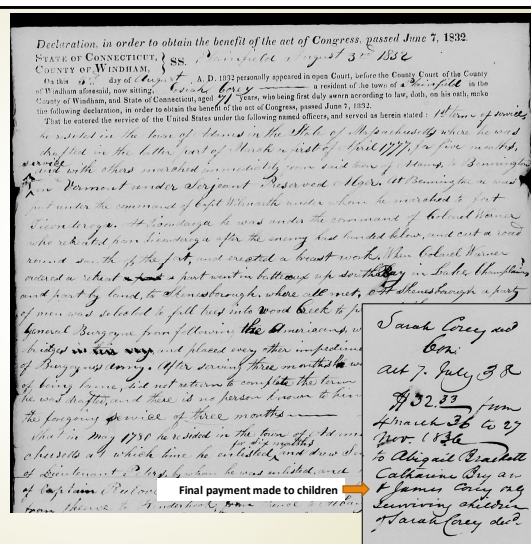 Declaration, in order to obtain the benefit of the act of Congress, passed June 7, 1832.
STATE OF CONNECTICUT,
COUNTY OF WINDHAM,
SS. Plainfield August 3rd 1832
On this 3rd day of August A. D. 1832 personally appeared in open Court, before the County Court of the County
of Windham aforesaid, now sitting, Corey a resident of the town of Plainfield in the
County of Windham, and State of Connecticut, aged 71 years, who being first duly sworn according to law, doth, on his oath, make
the following declaration, in order to obtain the benefit of the act of Congress, passed June 7, 1832.
That he entered the service of the United States under the following named officers, and served as herein stated : 1st term of service
he resided in the town of in the State of Massachusetts where he was
drafted in the latter part of March or first of April 1777, for five months,
service
and with others marched immediately from said town of to Bennington
in Vermont under Sergeant At Bennington he was
put under the command of Capt under whom he marched to fort
Ticonderoga. At Ticondaroga he was under the command of Colonel Warner
who retreated from Ticondroga after the enemy had landed below, and cut a road
round south of the fort, and erected a breast work. When Colonel Warner
ordered a retreat a part went in batteaux up South Bay in Lake Champlain
and part by land, to Skenesborough. where all met. At Skenesborough a party
of men was selected to fall trees into Wood Creek to p
General Burgoyne from following the Americans, w
bridges and placed every other impedime
of Burgoynes army. After serving three months he w
of being lame, did not return to complete the term
he was drafted, and there is no person known to him
the foregoing service of three months
That in May 1780 he resided in the town of
for six months
at which time he enlisted, and
of Lieutenant by whom he was enlisted, and
of Captain
from thence to Kinderhook, from hence
Sarah Corey decd
Con:
act 7. July 38
$32.33 from
4 March 36 to 27
Nov. 1836
to Abigail Brackett
Catharine Bry an
& James Corey only
surviving children
of Sarah Corey decd
Final payment made to children